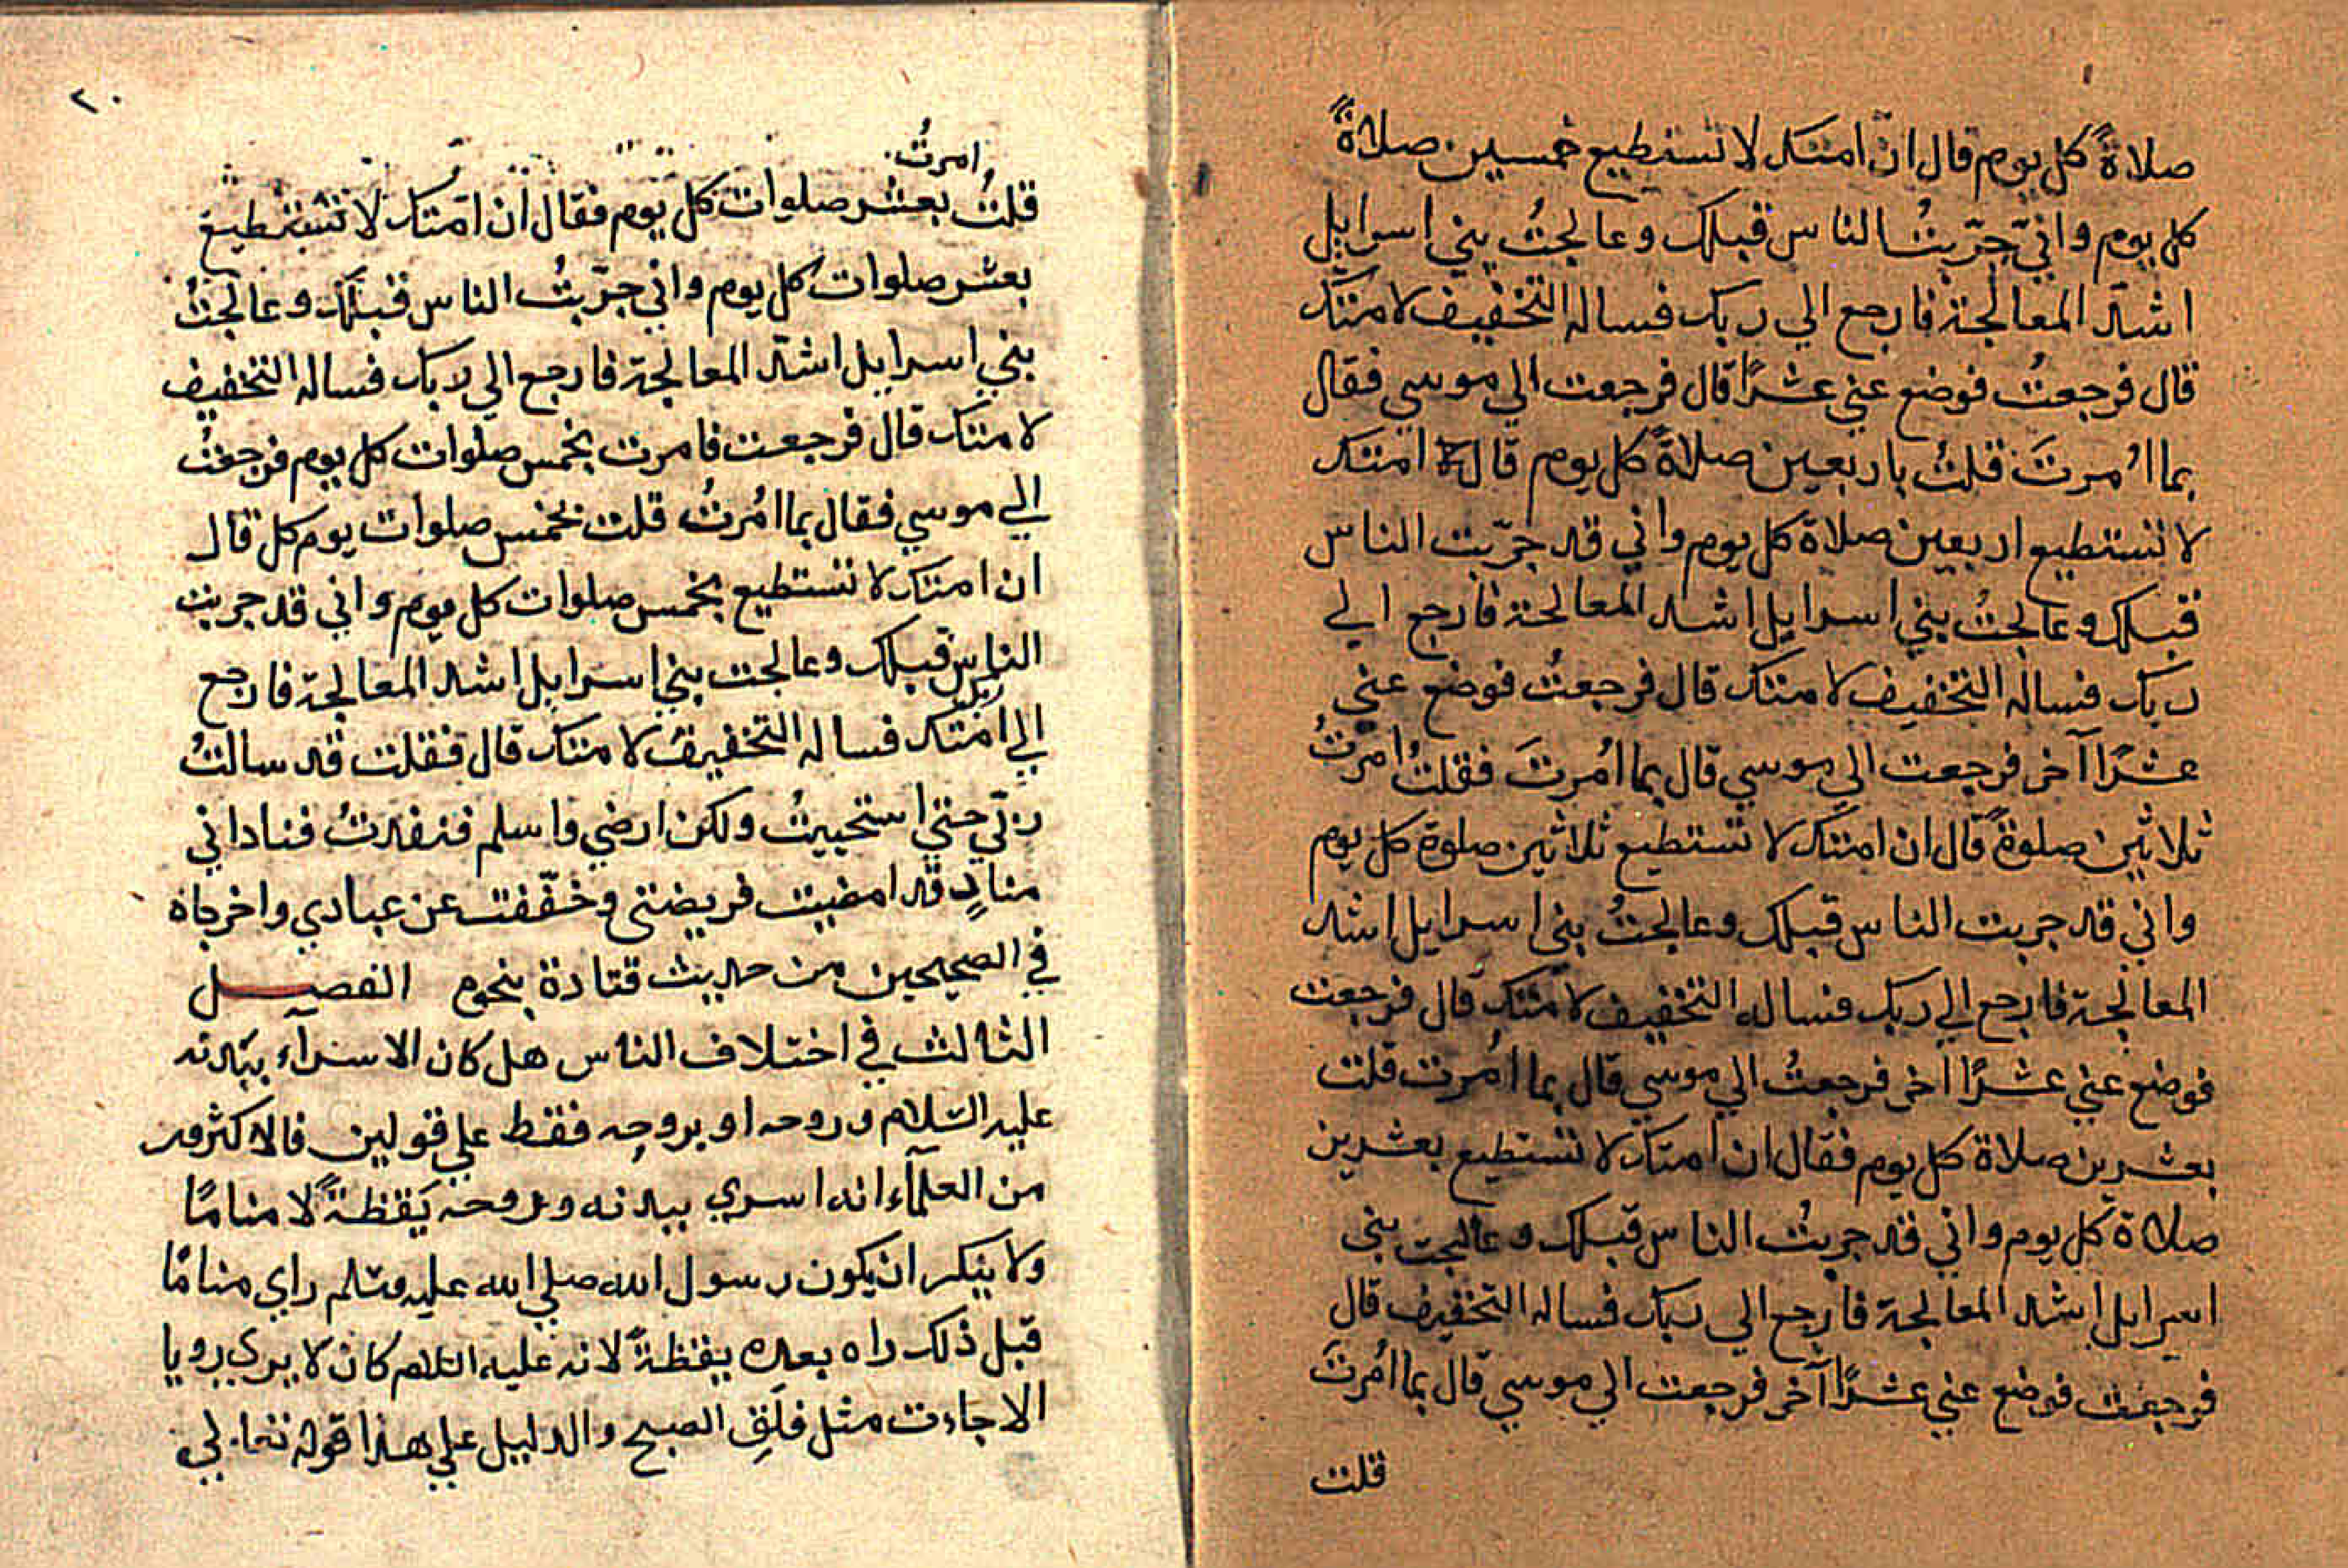 صلاةً كل يوم قال انّ امتك لا تستطيع خمسين صلاةً
كل يوم واني جرّبتُ الناس قبلك وعالجتُ بني اسرايل
اشد المعالجة فارجع الي ربك فساله التخفيف لامتك
قال فرجعتُ فوضع عني عشرًا قال فرجعت الي موسي فقال
بما اُمرتَ قلتُ باربعين صلاةً كل يوم قال امتك
لا تستطيع اربعين صلاة كل يوم واني قد جرّبت الناس
قبلك وعالجتُ بني اسرايل اشد المعالجة فارجع الي
ربك فساله التخفيف لامتك قال فرجعتُ فوضع عني
عشرًا آخر فرجعت الي موسي قال بما اُمرتَ فقلتُ امرتُ
ثلاثين صلوةً قال ان امتك لا تستطيع ثلاثين صلوة كل يوم
واني قد جربت الناس قبلك وعالجتُ بني اسرايل اشد
المعالجة فارجع الي ربك فساله التخفيف لامتك قال فرجعت
فوضع عني عشرًا آخر فرجعتُ الي موسي قال بما اُمرت قلت
بعشرين صلاة كل يوم فقال ان امتك لا تستطيع بعشرين
صلاة كل يوم واني قد جربتُ الناس قبلك وعالجت بني
اسرايل اشد المعالجة فارجع الي ربك فساله التخفيف قال
فرجعت فوضع عني عشرًا آخر فرجعت الي موسي قال بما اُمرتَ
قلت
٢٠
امرتُ
قلتُ بعشر صلوات كل يوم فقال ان امّتك لا تستطيع
بعشر صلوات كل يوم واني جرّبتُ الناس قبلك وعالجتُ
بني اسرايل اشدّ المعالجة فارجع الي ربك فساله التخفيف
لامتك قال فرجعت فامرت بخمس صلوات كل يوم فرجعتُ
الي موسي فقال بما اُمرتُ قلت بخمس صلوات يوم كل قال
ان امتك لا تستطيع بخمس صلوات كل يوم واني قد جربت
الناس قبلك وعالجت بني اسرايل اشد المعالجة فارجع
ربك
الي امتك فساله التخفيف لامتك قال فقلت قد سالتُ
ربّي حتي استحييتُ ولكن ارضي واسلم فنفدتُ فناداني
منادٍ قد امضيت فريضتي وخفّفت عن عبادي واخرجاه
في الصحيحين من حديث قتادة بنحوم الفصـل
الثالث في اختلاف الناس هل كان الاسرآء ببدنه
عليه السّلام وروحه او بروحِه فقط علي قولين فالاكثرون
من العلمآء انه اسري ببدنه وبروحه يَقظةً لا منامًا
ولا ينكر ان يكون رسول الله صلي الله عليه وسلم راي منامًا
قبل ذلك راه بعده يقظةً لانه عليه السلام كان لا يري رويا
الا جاءت مثل فلَقِ الصبح والدليل علي هذا قوله تعالي